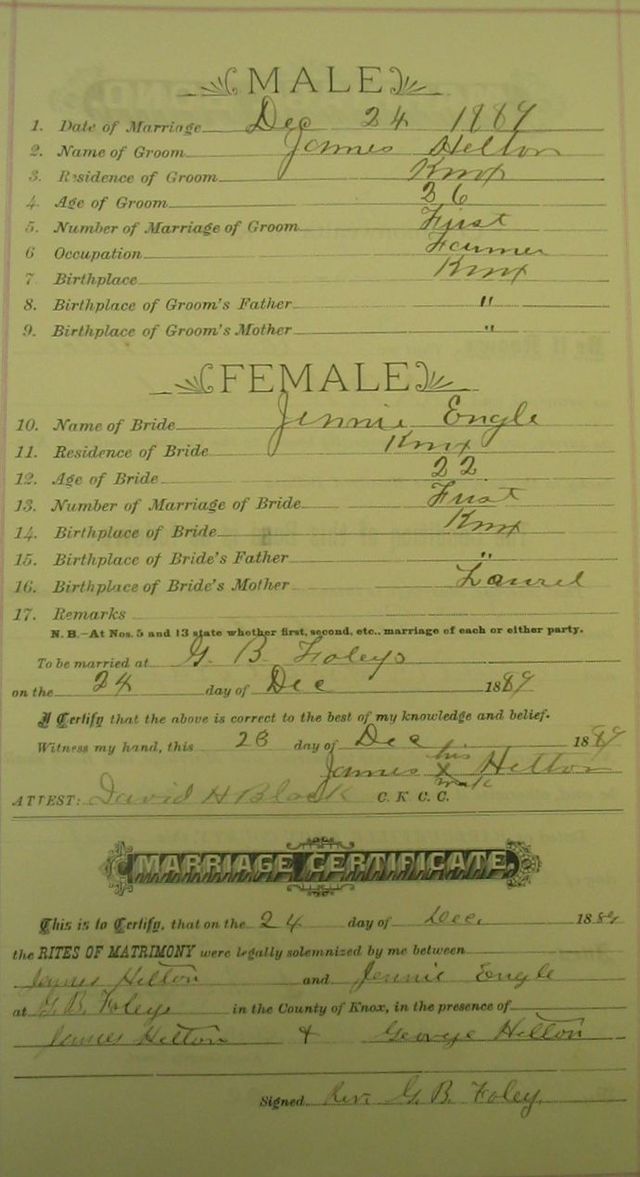 MALE
1. Date of Marriage Dec 24 1889
2. Name of Groom James Helton
3. Residence of Groom Knox
4. Age of Groom 26
5. Number of Marriage of Groom First
6 Occupation Farmer
7 Birthplace Knox
8. Birthplace of Groom's Father "
9. Birthplace of Groom's Mother "
FEMALE
10. Name of Bride Jennie Engle
11. Residence of Bride Knox
12. Age of Bride 22
13. Number of Marriage of Bride First
14. Birthplace of Bride Knox
15. Birthplace of Bride's Father "
16. Birthplace of Bride's Mother Laurel
17. Remarks
N. B.—At Nos. 5 and 13 state whether first, second, etc., marriage of each or either party.
To be married at G. B Foleys
on the 24 day of Dec 1889
I Certify that the above is correct to the best of my knowledge and belief.
Witness my hand, this 23 day of Dec 1889
James his x mark Helton
ATTEST: David H Black C. K C. C.
MARRIAGE CERTIFICATE.
This is to Certify, that on the 24 day of Dec. 1889
the RITES OF MATRIMONY were legally solemnized by me between
James Helton and Jennie Engle
at G. B. Foleys in the County of Knox, in the presence of
James Helton & George Helton
Signed Rev. G. B. Foley.